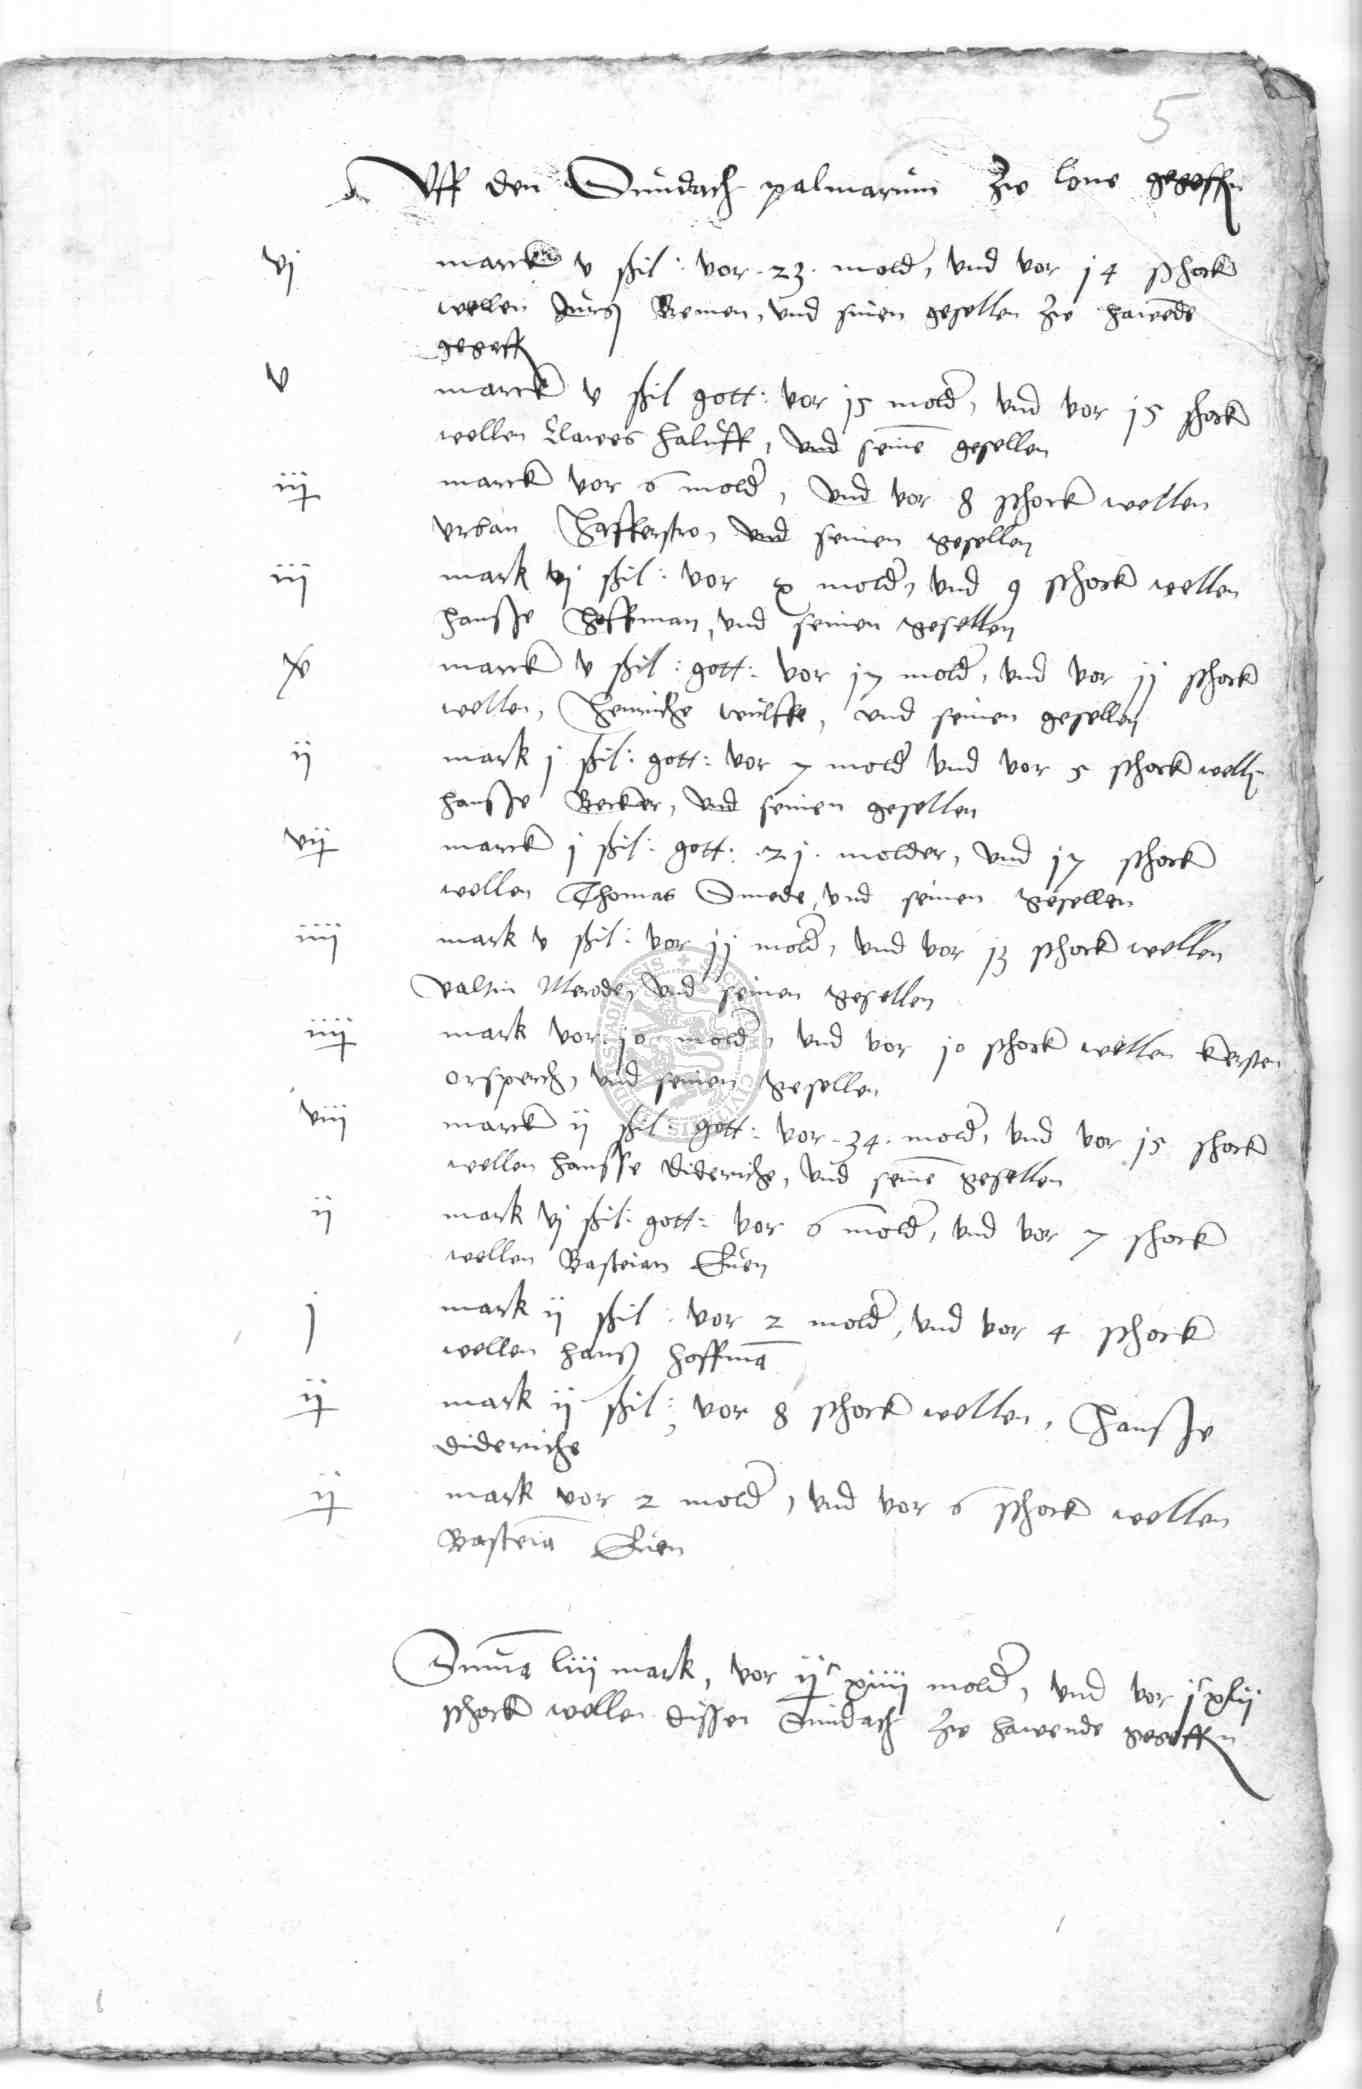 5
Uff den Sundach palmarum zw lone gegeffn
vj marck v ßil: vor .23. mold, und vor j4 schock
wellen Jurg Bemen, und sinen gesellen zw hawende
gegeff
v marck v ßil gott: vor j5 mold, und vor j5 schock
wellen Clawes haluff, und seine gesellen
iij marck vor 6 mold, und vor 8 schock wellen
urban Hafferstro, und seinen gesellen
iij mark vj ßil: vor x mold, und 9 schock wellen
hansse Hoffman, und seinen gesellen
marck v ßil: gott: vor j7 mold, und vor jj schock
wellen, Henriche wulffe, und seinen gesellen
ij mark j ßil: gott: vor 7 mold und vor 5 schock well
hansse Becker, und seinen gesellen
vij marck j ßil: gott: .2j. molder, und j7 schock
wellen Thomas Smede, und seinen gesellen
iiij mark v ßil: vor jj mold, und vor j3 schock wellen
valtin Merode, und seinen gesellen
iiij mark vor jo mold, und vor jo schock wellen kersten
orsperch, und seinen gesellen
viii marck ij ßil: gott: vor .34. mold, und vor j5 schock
wellen hansse diderichs, und seine gesellen
ij mark vj ßil: gott: vor 6 mold, und vor 7 schock
wellen Basteian
j mark ij ßil: vor 2 mold, und vor 4 schock
wellen hans hoffma
ij mark ij ßil: vor 8 schock wellen, Hansse
diderichs
ij mark vor 2 mold, und vor 6 schock wellen
Basteia
Suma liij mark, vor ijc xiiij mold, und vor jc xlij
schock wellen dissen Sundach zw hawende gegeffn